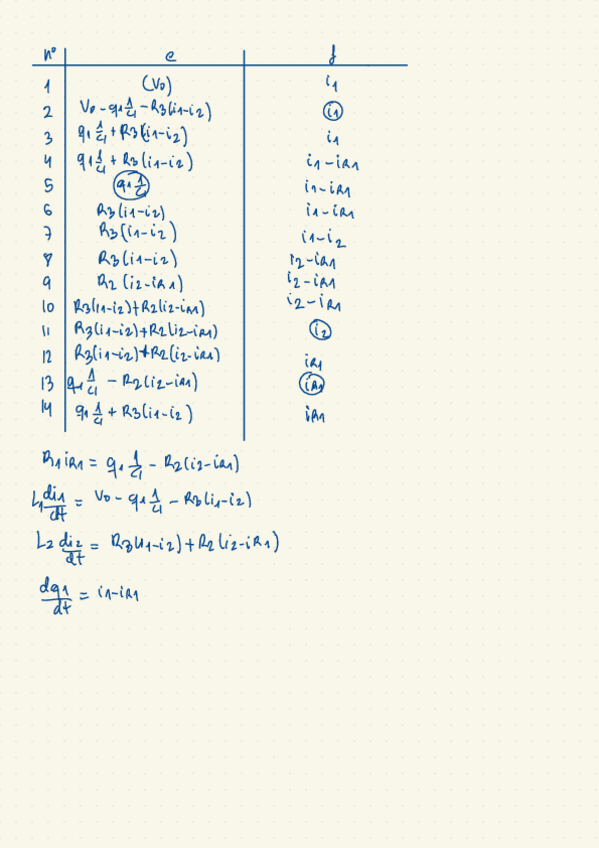 n° e f
1 (V0) i1
2 V0 - q1 1/C1 - R3(i1-i2) i1
3 q1 1/C1 + R3(i1-i2) i1
4 q1 1/C1 + R3(i1-i2) i1-iR1
5 q1 1/C1 i1-iR1
6 R3(i1-i2) i1-iR1
7 R3(i1-i2) i1-i2
8 R3(i1-i2) i2-iR1
9 R2(i2-iR1) i2-iR1
10 R3(i1-i2)+R2(i2-iR1) i2-iR1
11 R3(i1-i2)+R2(i2-iR1) i2
12 R3(i1-i2)+R2(i2-iR1) iR1
13 q1 1/C1 - R2(i2-iR1) iR1
14 q1 1/C1 + R3(i1-i2) iR1
R1 iR1 = q1 1/C1 - R2(i2-iR1)
L1 di1/dt = V0 - q1 1/C1 - R3(i1-i2)
L2 di2/dt = R3(i1-i2)+R2(i2-iR1)
dq1/dt = i1-iR1